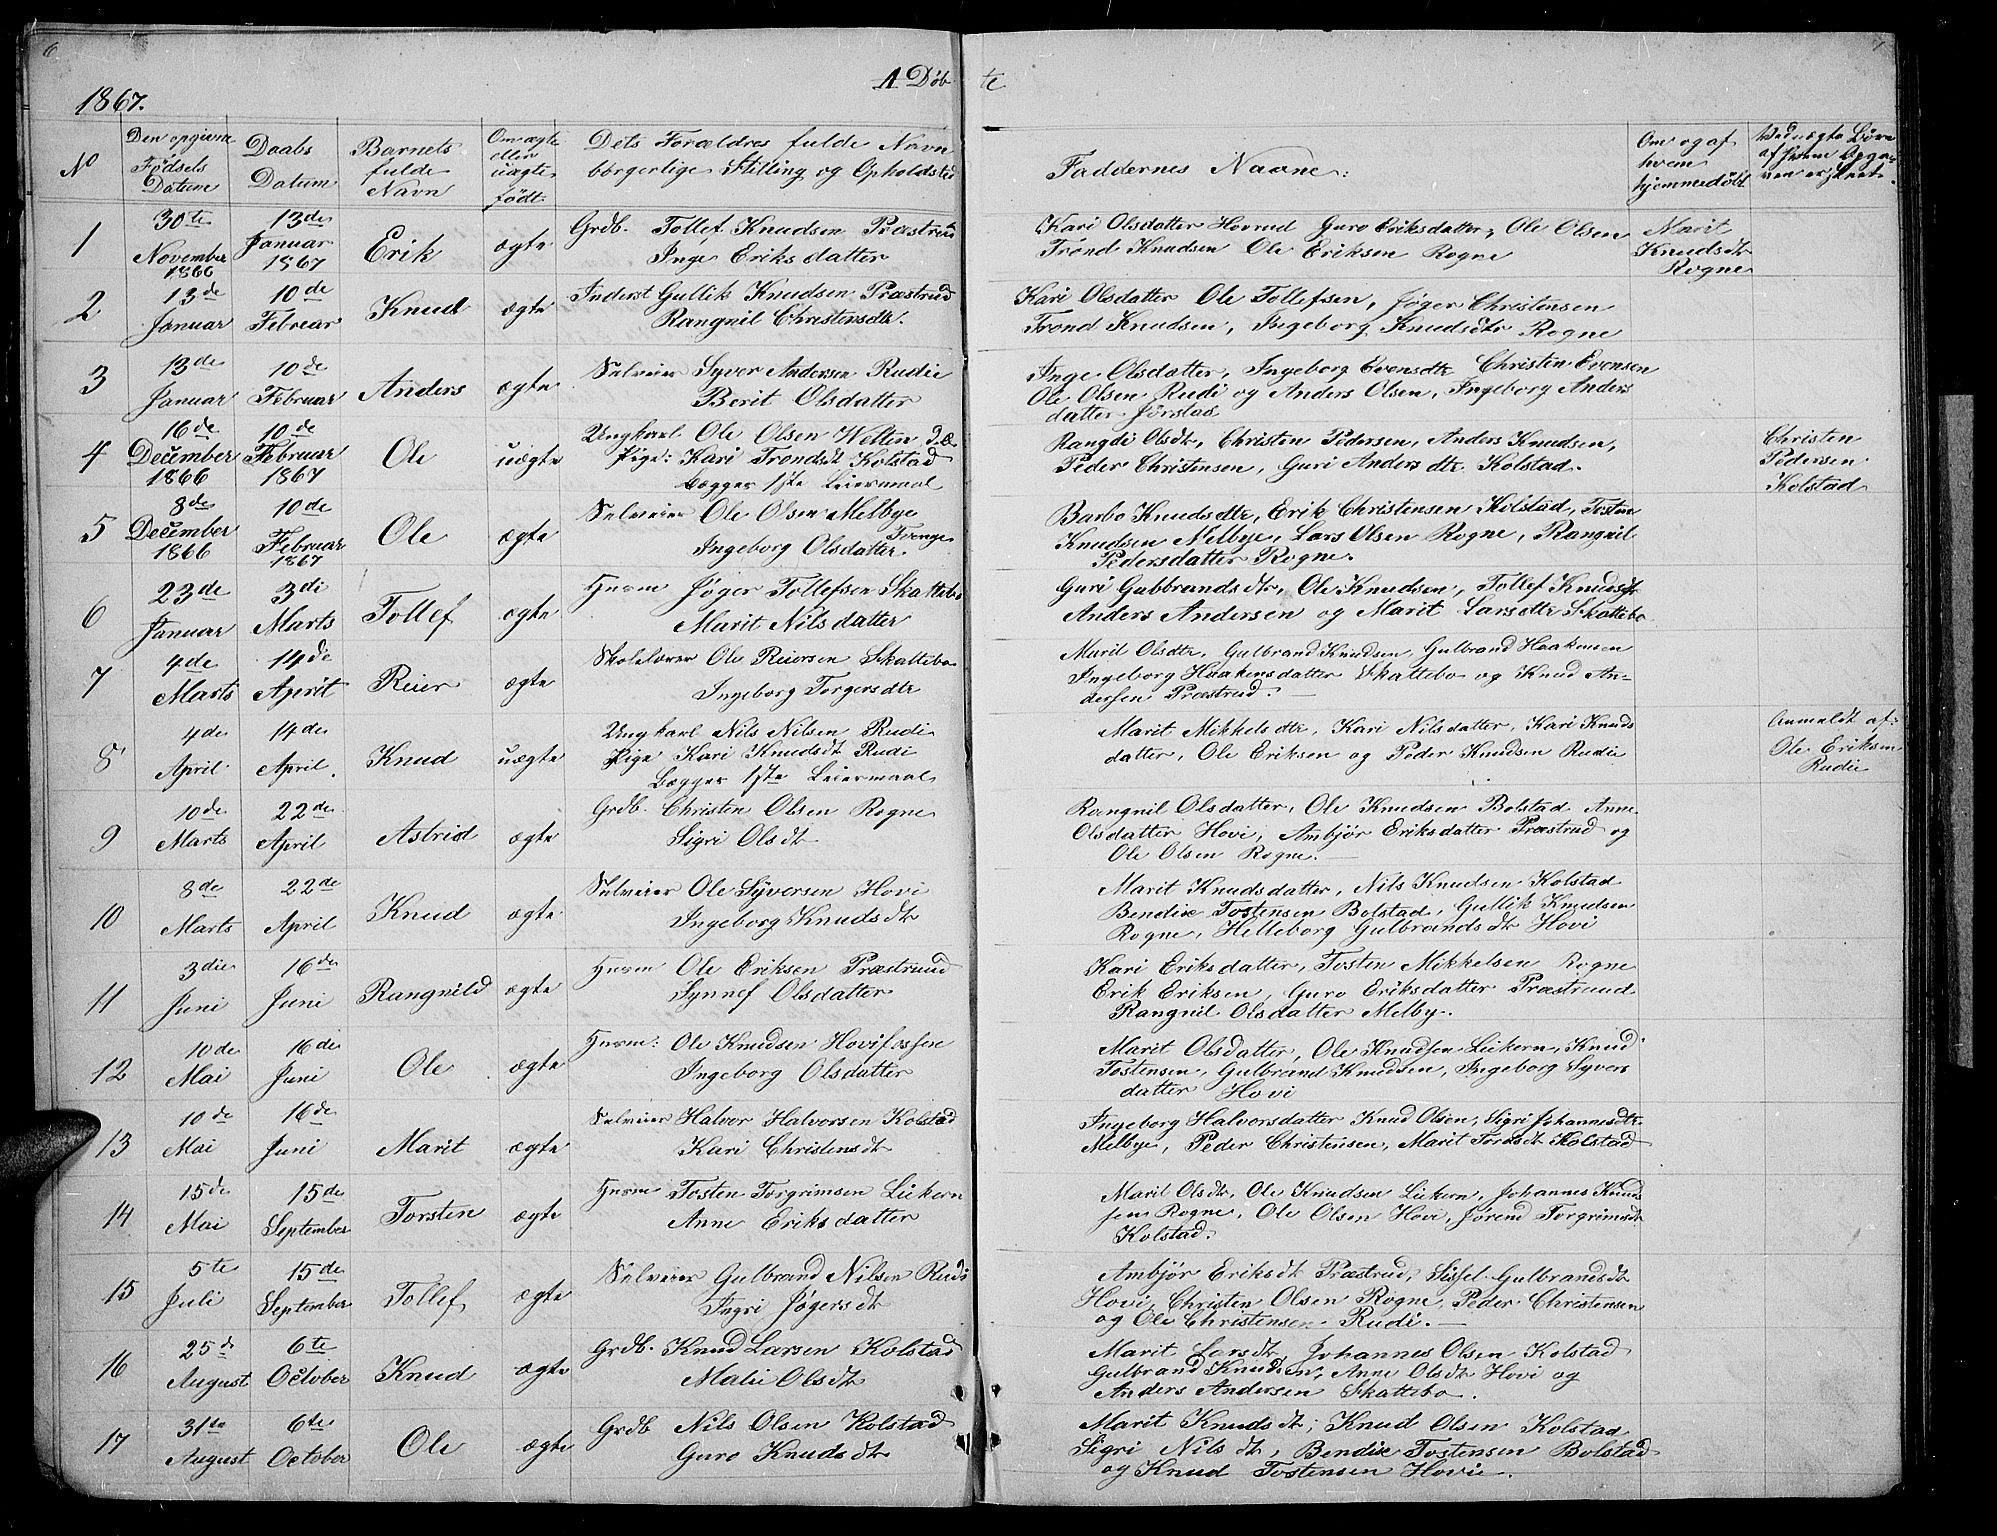 6
7
1867.
A Døb te
No
Den opgivne Fødsels Datum
Daabs Datum
Barnets fulde Navn
Om ægte eller uægte født.
Dets Forældres fulde Navn borgerlige Stilling og Opholdsted
Faddernes Navne:
Om og af hvem hjemmedøbt
Ved uægte Børn af hvem Opgaven er skeet.
1 30te November 1866 13de Januar 1867 Erik ægte Grdb. Tollef Knudsen Præstrud
Inge Eriksdatter
Kari Olsdatter Hovrud Guro Eriksdatter, Ole Olsen
Trond Knudsen Ole Eriksen Rogne
Marit Knudsdtr Rogne
2 13de Januar 10de Februar Knud ægte Inderst Gullik Knudsen Præstrud
Rangnil Christensdtr.
Kari Olsdatter Ole Tollefsen, Jøger Christensen
Trond Knudsen, Ingeborg Knudsdtr Rogne
3 13de Januar 10de Februar Anders ægte Selveier Syver Andersen Rudie
Berit Olsdatter
Inge Olsdatter, Ingeborg Evensdtr Christen Evensen
Ole Olsen Rudi og Anders Olsen, Ingeborg Anders
datter Jørstad
4 16de December 1866 10de Februar 1867 Ole uægte Ungkarl Ole Olsen Welten
Pige: Kari Trondsdt Kolstad
Begges 1ste Leiermaal
Rangdi Olsdt, Christen Pedersen, Anders Knudsen,
Peder Christensen, Guri Andersdtr. Kolstad.
Christen Pedersen Kolstad
5 8de December 1866 10de Februar 1867 Ole ægte Selveier Ole Olsen Melbye
Ingeborg Olsdatter
Barbo Knudsdtr, Erik Christensen Kolstad, Tosten
Knudsen Melbye, Lars Olsen Rogne, Rangnil
Pedersdatter Rogne.
6 23de Januar 3di Marts Tollef ægte Husm Jøger Tollefsen Skattebo
Marit Nilsdatter
Guri Gulbrandsdt, Ole Knudsen, Tollef Knudsen
Anders Andersen og Marit Larsdtr Skattebo
7 4de Marts 14de April Reier ægte Skolelærer Ole Reiersen Skattebo
Ingeborg Torgersdtr
Marit Olsdtr, Gulbrand Knudsen, Gulbrand Haakensen
Ingeborg Haakensdatter Skattebo og Knud An-
dersen Præstrud.
8 4de April 14de April. Knud uægte Ungkarl Nils Nilsen Rudi
Pige Kari Knudsdt Rudi
Begges 1ste Leiermaal
Marit Mikkelsdtr, Kari Nilsdatter, Kari Knuds
datter, Ole Eriksen og Peder Knudsen Rudie
Anmeldt af: Ole Eriksen Rudie
9 10de Marts 22de April Astrid ægte Grdb. Christen Olsen Rogne
Sigri Olsdt
Rangnil Olsdatter, Ole Knudsen Bolstad Anne
Olsdatter Hovi, Ambjør Eriksdatter Præstrud og
Ole Olsen Rogne.
10 8de Marts 22de April Knud ægte Selveier Ole Syversen Hovi
Ingeborg Knudsdt
Marit Knudsdatter, Nils Knudsen Kolstad
Bendixe Tostensen Bolstad, Gullik Knudsen
Rogne, Helleborg Gulbrandsdt Hovi
11 3die Juni 16de Juni Rangnild ægte Husm Ole Eriksen Præstrud
Synnef Olsdatter
Kari Eriksdatter, Tosten Mikkelsen Rogne
Erik Eriksen, Guro Eriksdatter Præstrud
Rangnil Olsdatter Melby.
12 10de Mai 16de Juni Ole ægte Husm: Ole Knudsen Hovifossen
Ingeborg Olsdatter
Marit Olsdatter, Ole Knudsen Liekern, Knud
Tostensen, Gulbrand Knudsen, Ingeborg Syvers
datter Hovi
13 10de Mai 16de Juni Marit ægte Selveier Halvor Halvorsen Kolstad
Kari Christensdt
Ingeborg Halvorsdatter Knud Olsen, Sigri Johannesdtr
Melbye, Peder Christensen, Marit Torsdt Kolstad
14 15de Mai 15de September Torsten ægte Husm Tosten Torgrimsen Liekern
Anne Eriksdatter
Marit Olsdt, Ole Knudsen Liekern, Johannes Knud
sen Rogne, Ole Olsen Hovi, Jørend Torgrimsdt
Kolstad.
15 5te Juli 15de September Tollef ægte Selveier Gulbrand Nilsen Rudi
Ingri Jøgersdt
Ambjør Eriksdt Præstrud, Sissel Gulbrandsdt
Hovi, Christen Olsen Rogne, Peder Christensen
og Ole Christensen Rudi.
16 25de August 6te October Knud ægte Grdb. Knud Larsen Kolstad
Malie Olsdt
Marit Larsdt, Johannes Olsen Kolstad
Gulbrand Knudsen, Anne Olsdt Hovi og
Anders Andersen Skattebo.
17 31te August 6te October Ole ægte Grdb Nils Olsen Kolstad
Guro Knudsdt
Marit Knudsdt, Knud Olsen Kolstad
Sigri Nilsdt, Bendixe Tostensen Bolstad
og Knud Tostensen Hovie.